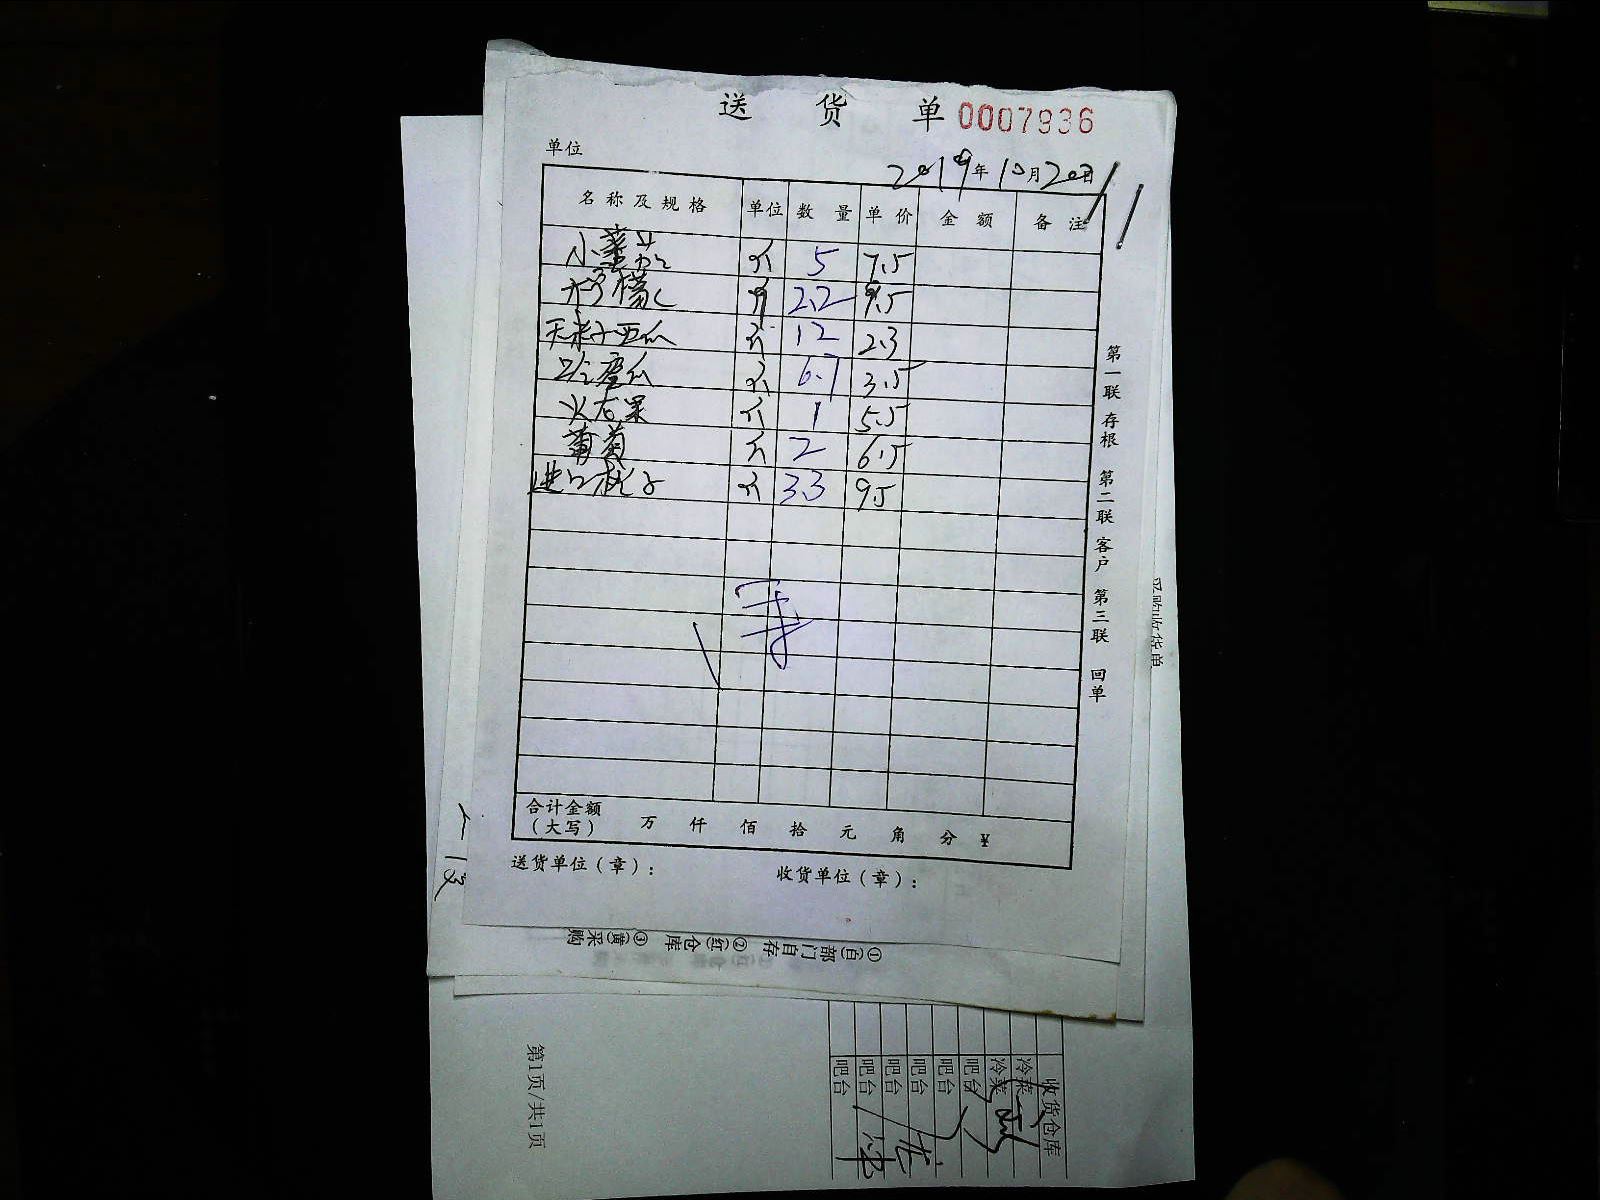 送 货 单 0007936
单位
2019年10月20日
名称及规格 单位 数量 单价 金额 备注
小 斤 5 7.5
斤 2.2 9.5
西瓜 斤 12 2.3
哈蜜瓜 斤 6.7 3.5
火龙果 斤 1 5.5
葡萄 斤 2 6.5
进口桃子 斤 3.3 9.5
合计金额
（大写） 万 仟 佰 拾 元 角 分 ¥
送货单位（章）： 收货单位（章）：
第一联 存根 第二联 客户 第三联 回单
采购收货单
①(白)部门自存 ②(红)仓库 ③(黄)采购
收货仓库
冷菜
冷菜
吧台
吧台
吧台
吧台
吧台
吧台
第1页/共1页